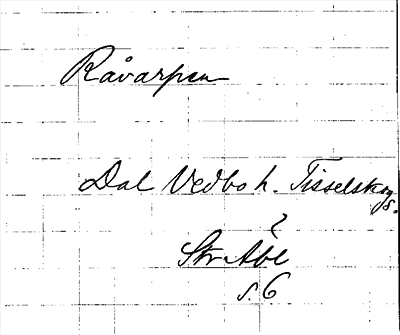 Råvarpen
Dal Vedbo h. Tisselskogs.
?
Str Åbl
s. 6